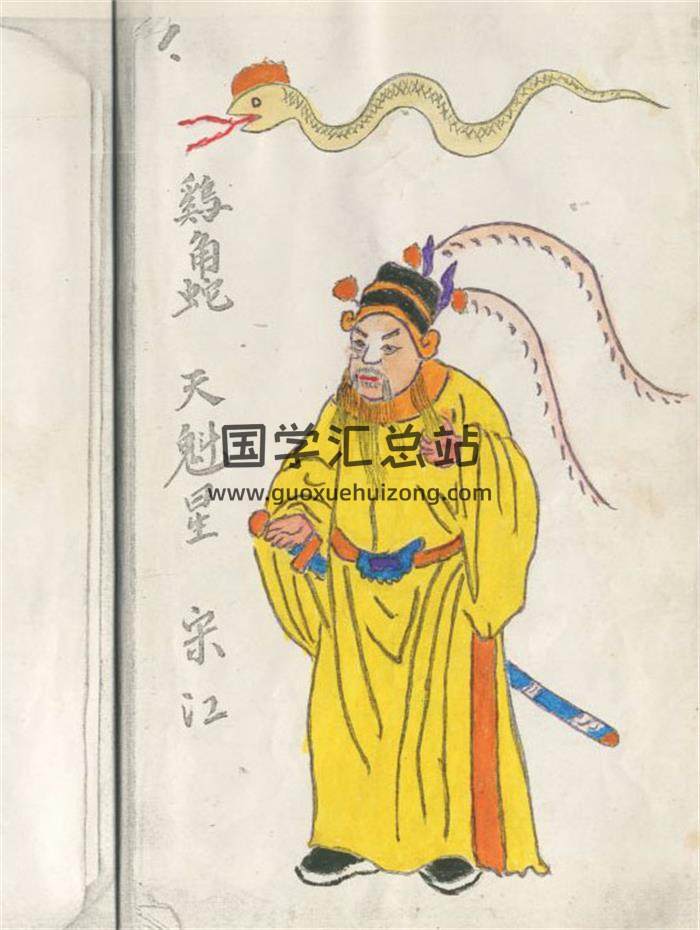 1.
鷄角蛇 天魁星 宋江
国学汇总站
www.guoxuehuizong.com